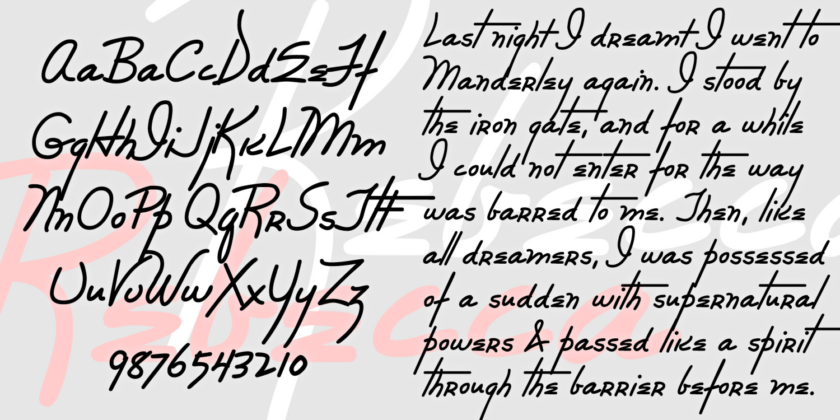 AaBaCcDdEeFf
GgHhIiJjKkLMm
NnOoPp QqRrSsTt
UuVvWwXxYyZz
9876543210
Last night I dreamt I went to
Manderley again. I stood by
the iron gate, and for a while
I could not enter for the way
was barred to me. Then, like
all dreamers, I was possessed
of a sudden with supernatural
powers & passed like a spirit
through the barrier before me.
Rebecca
Rebecca